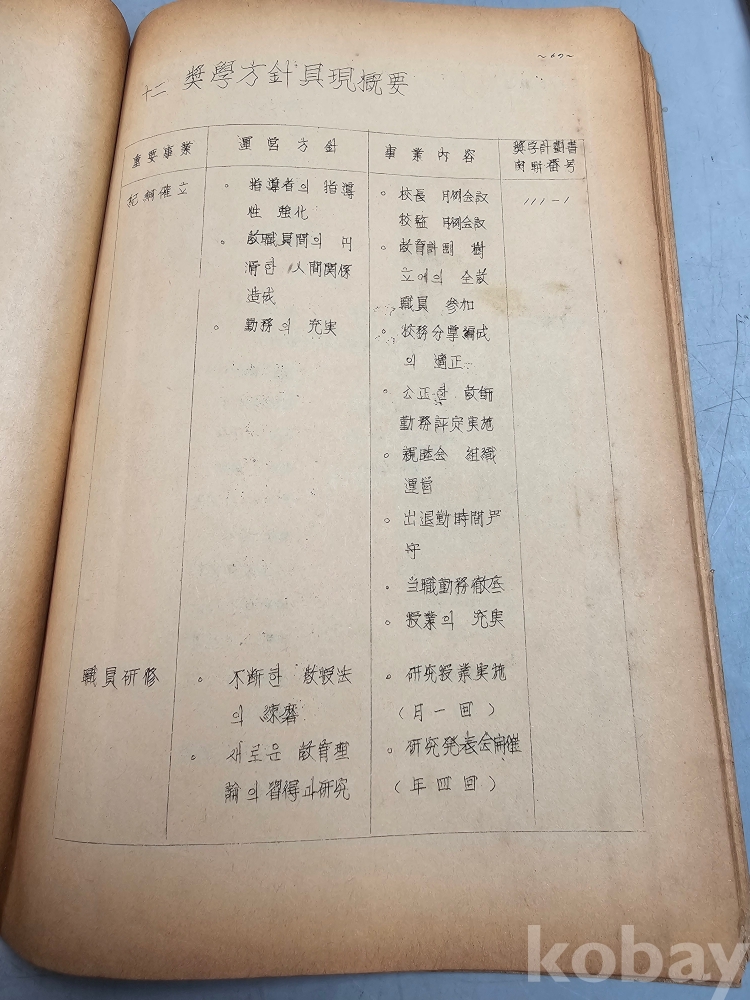 十二 奬學方針具現概要
重要事業
運営方針
事業内容
奬学計劃書
関聯番号
紀綱確立
◦ 指導者의 指導
性 強化
◦ 敎職員間의 円
滑한 人間関係
造成
◦ 勤務의 充実
◦ 校長 月例会議
校監 月例会議
◦ 敎育計劃 樹
立에의 全敎
職員 参加
◦ 校務分掌編成
의 適正
◦ 公正한 敎師
勤務評定実施
◦ 親睦会 組織
運営
◦ 出退勤時間 严
守
◦ 当職勤務徹底
◦ 授業의 充実
111-1
職員研修
◦ 不断한 敎授法
의 練磨
◦ 새로운 敎育理
論의 習得과 研究
◦ 研究授業実施
(月一回)
◦ 研究発表会開催
(年四回)
kobay